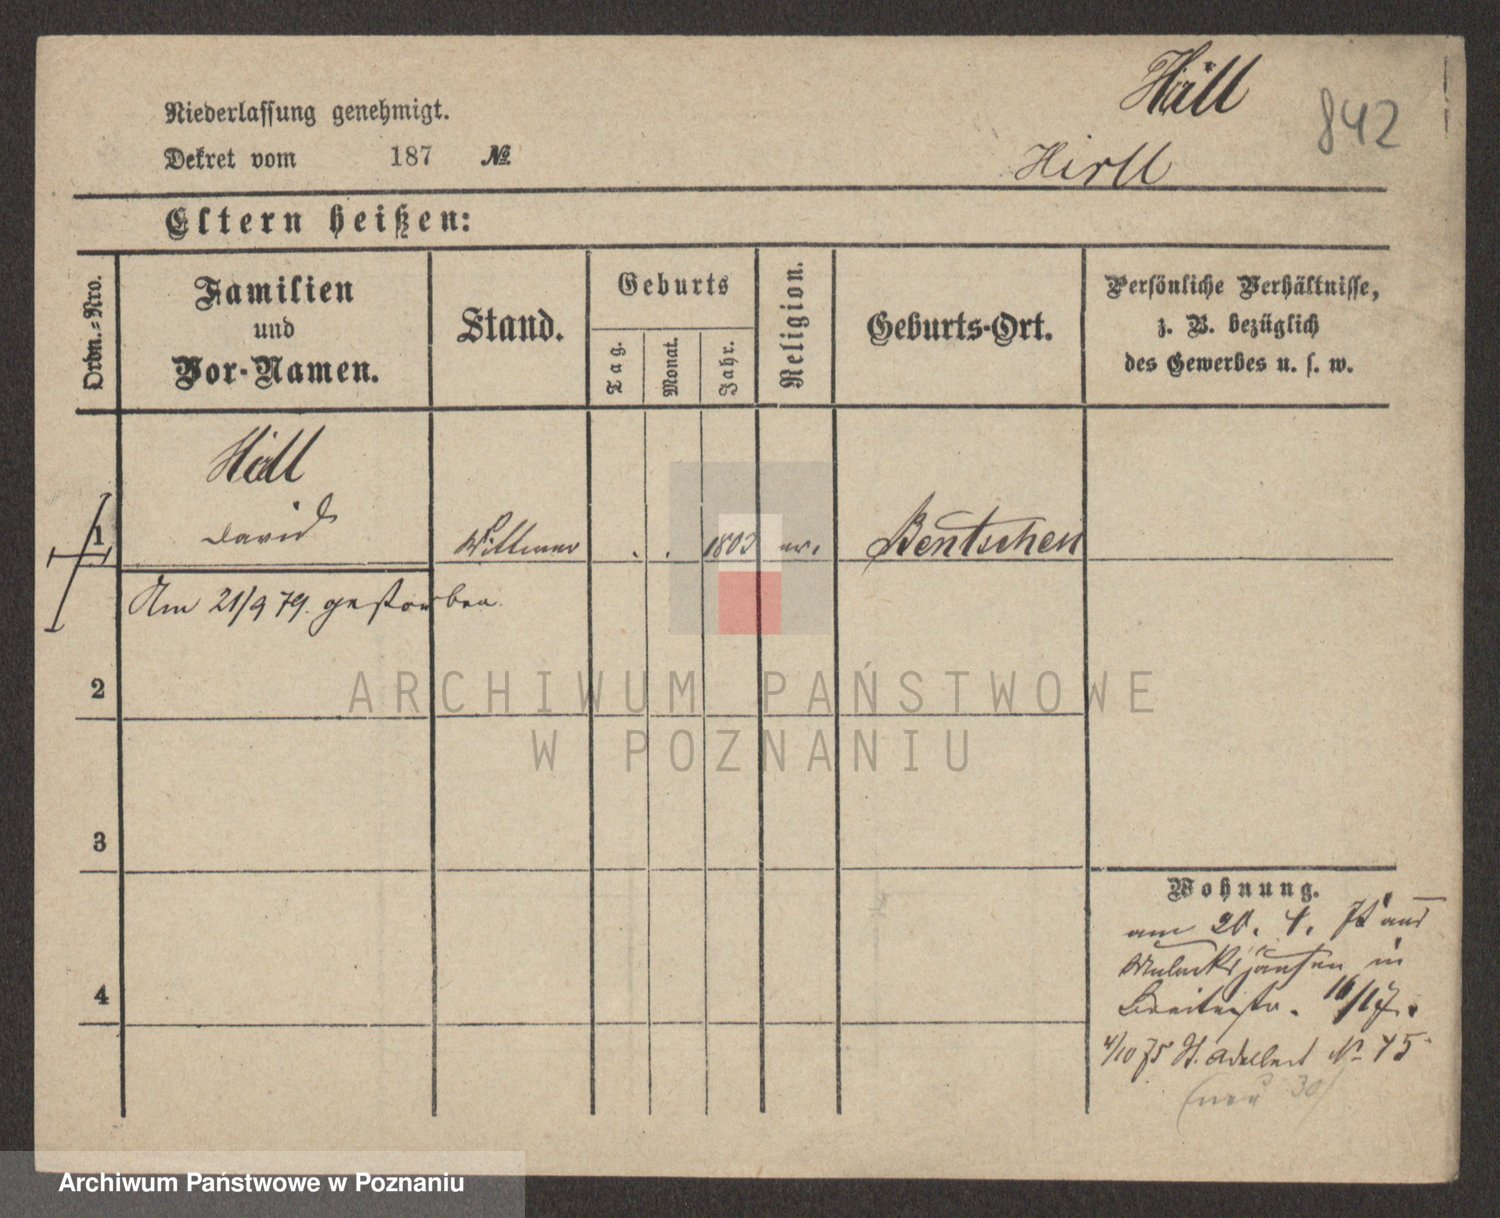 Häll
842
Niederlassung genehmigt.
Dekret vom 187 №
Hirll
Eltern heißen:
Ordn.-Nro.
Familien
und
Vor-Namen.
Stand.
Geburts
Tag.
Monat.
Jahr.
Religion.
Geburts-Ort.
Persönliche Verhältnisse,
z. B. bezüglich
des Gewerbes u. s. w.
Häll
1 David Wittwer . . 1803 Bentschen
Am 21/9 79. gestorben.
2
3
4
Wohnung.
am 20. 4. aus
in
Breitestr. 16/17.
4/10 75 St. Adalbert №
(neu 30)
ARCHIWUM PAŃSTWOWE
W POZNANIU
Archiwum Państwowe w Poznaniu